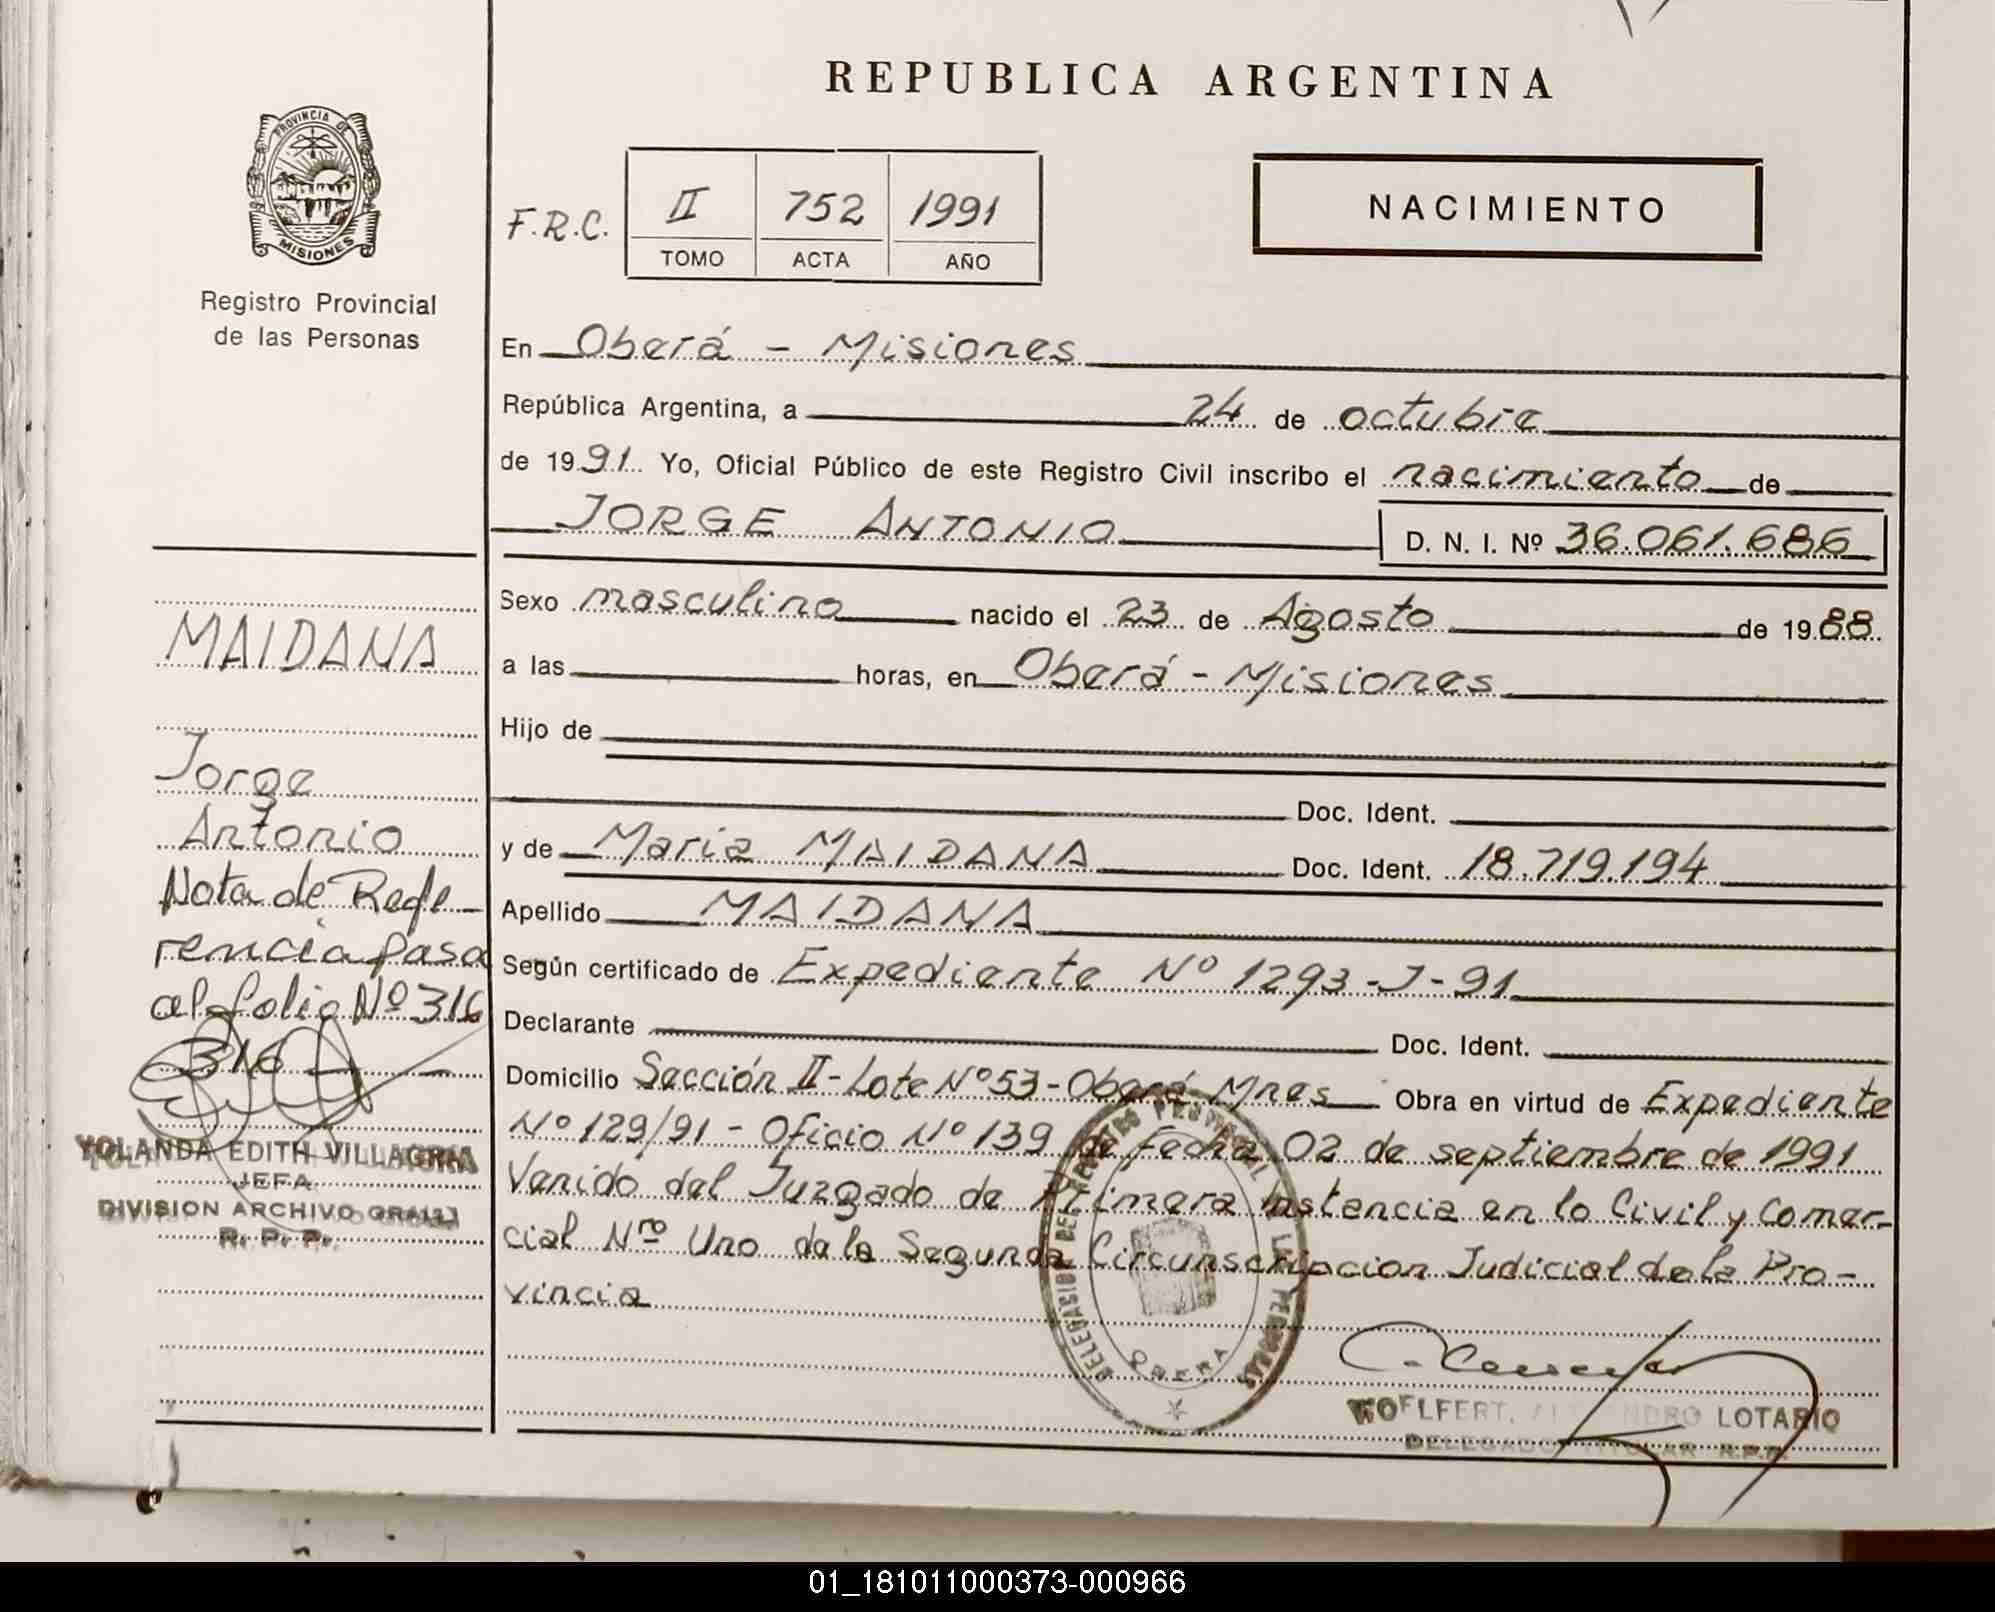 REPUBLICA ARGENTINA
PROVINCIA DE
MISIONES
Registro Provincial
de las Personas
F.R.C.
II 752 1991
TOMO ACTA AÑO
NACIMIENTO
En Oberá - Misiones
República Argentina, a 24 de octubre
de 1991 Yo, Oficial Público de este Registro Civil inscribo el nacimiento de
JORGE ANTONIO D. N. I. Nº 36.061.686
Sexo masculino nacido el 23 de Agosto de 1988
a las horas, en Oberá - Misiones
Hijo de
Doc. Ident.
y de Maria MAIDANA Doc. Ident. 18.719.194
Apellido MAIDANA
Según certificado de Expediente Nº 1293-J-91
Declarante Doc. Ident.
Domicilio Sección II-Lote Nº53-Oberá Mnes Obra en virtud de Expediente
Nº 129/91 - Oficio Nº 139 de fecha 02 de septiembre de 1991
Venido del Juzgado de Primera Instencia en lo Civil y Comer-
cial Nro Uno de la Segunda Circunscripcion Judicial de la Pro-
vincia
MAIDANA
Jorge
Antonio
Nota de Refe-
rencia pasa
al folio Nº 316
316
YOLANDA EDITH VILLAGRA
JEFA
DIVISION ARCHIVO GRAL.
R. P. P.
OBERA
WOFLFERT, ALEJANDRO LOTARIO
DELEGADO TITULAR R.P.P.
01_181011000373-000966